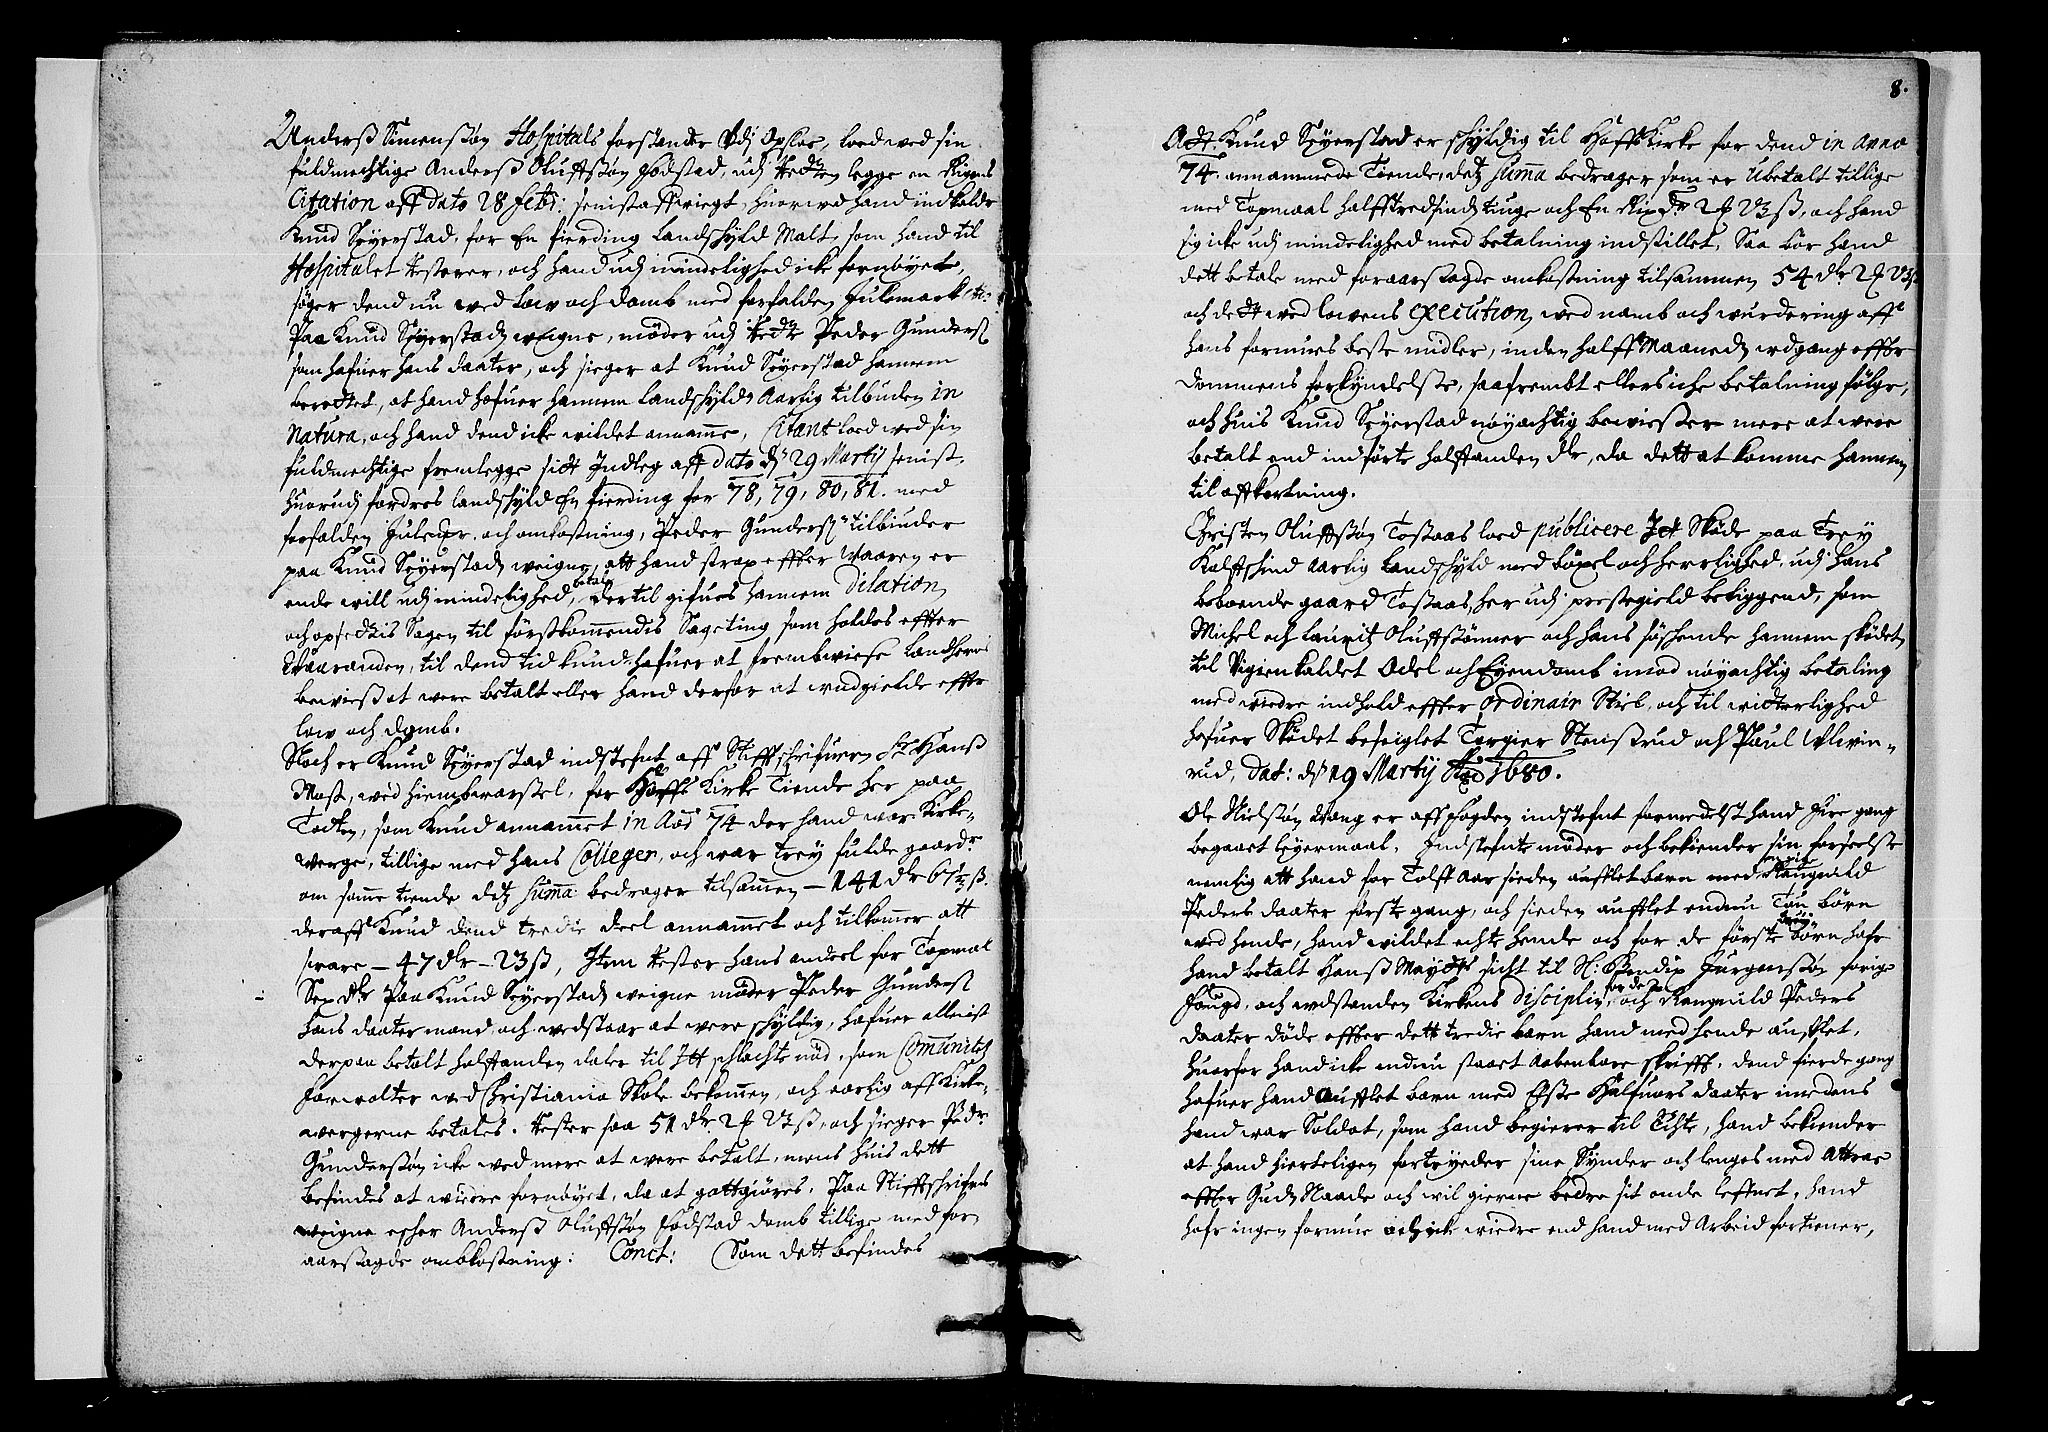 Anderß Simenßøn Hospitals forstander Vdj Opsloe, loed ved sin
fuldmechtige Anderß Oluffßøn Fodstad, udj Retten legge en Rigens
Citation aff dato 28 Febr: senist affvigt, huorved hand indkalder
Knud Seyerstad, for En fierding Landschyld Malt, som hand til
Hospitalet Rester, och hand udj mindelighed icke fornøyet,
søger dend nu ved Low och domb med forfalden Julemark etc:
Paa Knud Seyerstads weigne, møder udj Rette Peder Gunderß
som hafuer hans daater, och sieger at Knud Seyerstad hannem
berettet, at hand hafuer hannem Landschyld Aarlig tilbuden in
Natura, och hand dend icke wildet annamme, Citant loed ved sin
fuldmechtige fremlegge sidt Indleg aff dato d. 29 Martij senist,
huorudj fordres landschyld En fierding for 78, 79, 80, 81. med
forfalden Julemark och omkostning, Peder Gunderß tilbiuder
paa Knud Seyerstads weigne, att hand strax effter Waaren er
ende will udj mindelighed, betale
dertil gifues hannem Dilation
och opsettis Sagen til førstkommendis Sageting som holdes effter
Waaranden, til dend tid Knud hafuer at frembwiese Landherrens
bewieß at were betalt eller hand derfor at undgielde effter
low och domb.
Noch er Knud Seyerstad indstefnt aff Stifftschrifueren Sr. Hanß
Moß, wed hiembwarsel, for Hoffs Kirke Tiende her paa
Todten, som Knud annammet in Ao 74 der hand war Kirke,
werge, tillige med hans Colleger, och war trey fulde gaarde
om samme tiende detz Suma bedrager tilsamen – 141 dlr 67½ ß.
deraff Knud dend tredie deel annammet och tilkommer att
suare – 47 dlr – 23 ß, Item Rester hans andeel for Topmal
Sex dlr Paa Knud Seyerstads weigne møder Peder Gunderß
hans daatermand, och wedstaar at were schyldig, hafuer alleniste
derpaa betalt halfanden daler til Itt schlachte nød, som Comunitets
Forwalter wed Christiania Skole bekommen, och aarlig aff Kirke,
wergerne betales. Rester saa 51 dlr 2 ꝑ 23 ß, och sieger Peder
Gunderßøn icke wed mere at were betalt, mens huis dett
befindes at wiere fornøyet, da at gottgiøres. Paa Stifftschrifuerens
weigne esker Anderß Olufßøn Fodstad domb tillige med for,
aarsagde ombkostning: Conct: Som dett befindes
8.
Adt. Knud Seyerstad er schyldig til Hoffs Kirke for dend in Anno
74. annammede Tiende, detz Suma bedrager som er Ubetalt tillige
med Topmaal halfftredsinds tiuge och En Rix dlr 2 ꝑ 23 ß, och hand
sig icke udj mindelighed med betalning indstillet, Saa bør hand
dett betale med foraarsagde omkostning tilsammen 54 dlr 2 ꝑ 23 ß
och dett wed lowens execution, wed namb och wurdering aff
hans formues beste midler, inden halff Maaneds udgang effter
Dommens forkyndelse, saafrembt ellers iche betalning følger,
och huis Knud Seyerstad nøyachtig bewiesser mere at were
betalt end indførte halffanden dlr, da dett at komme hannem
til affkortning.
Christen Oluffßøn Toßaas loed publicere Itt Skøde paa Trey
Kalffskind aarlig Landschyld med bøxel och herrlighed, udj hans
beboende gaard Toßaas, her udj prestegield beliggend, som
Michel och Laurit Oluffßønner och hans søskende hannem skødet
til Vigienkaldet Odel och Eyendomb imod nøyachtig betaling
med wiedre indhold effter ordinair Stiel, och til witterlighed
hafuer Skødet beseiglet Torgier Stenßrud och Paul Ulwin,
rud, Dat: d. 19 Martij Ao 1680.
Ole Nielßøn Wang er aff Fogden indstefnt formedelst hand fire gang
begaaet leyermaal. Indstefnte møder och bekiender sin forseelse
nemlig att hand for Tolff Aar sieden aufflet barn med Rangnild
Peders daater første gang, och sieden aufflet endnu Tou børn
wed hende, hand wildet echte hende och for de første børn hafr
hand betalt Hans Mayts sicht til Sl: Bendix Jurgenßøn forige
Fougd, och udstanden Kirkens disciplin, for de
och Rangnild Peders
daater døde effter dett tredie barn hand med hende aufflet,
huorfor hand icke endnu staaet Aabenbare skrifft. dend fierde gang
hafuer hand Aufflet barn med Eße Halfuors daater imedens
hand war Soldat, som hand begierer til Echte, hand bekiender
at hand hierteligen fortryeder sine Synder och lenges med Attraae
effter Guds Naade och wil gierne bedre sit onde leffnet, hand
hafr ingen formue och icke wiedre end hand med Arbeid fortiener,